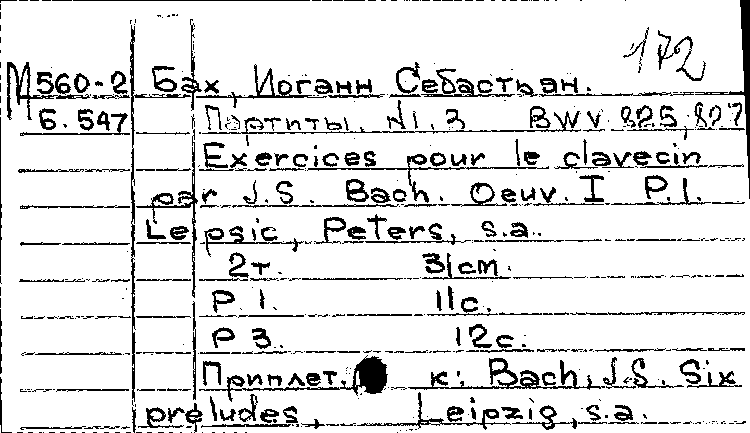 172
М560-2 Бах, Иоганн Себастьян.
Б.547 Партиты. N1.3 BWV 825,827
Exercices pour le clavecin
par J.S. Bach. Oeuv. I P.1.
Leipsic, Peters, s.a.
2т. 31cm.
P 1. 11c.
P 3. 12c.
Приплет. к: Bach, J.S. Six
preludes, Leipzig, s.a.